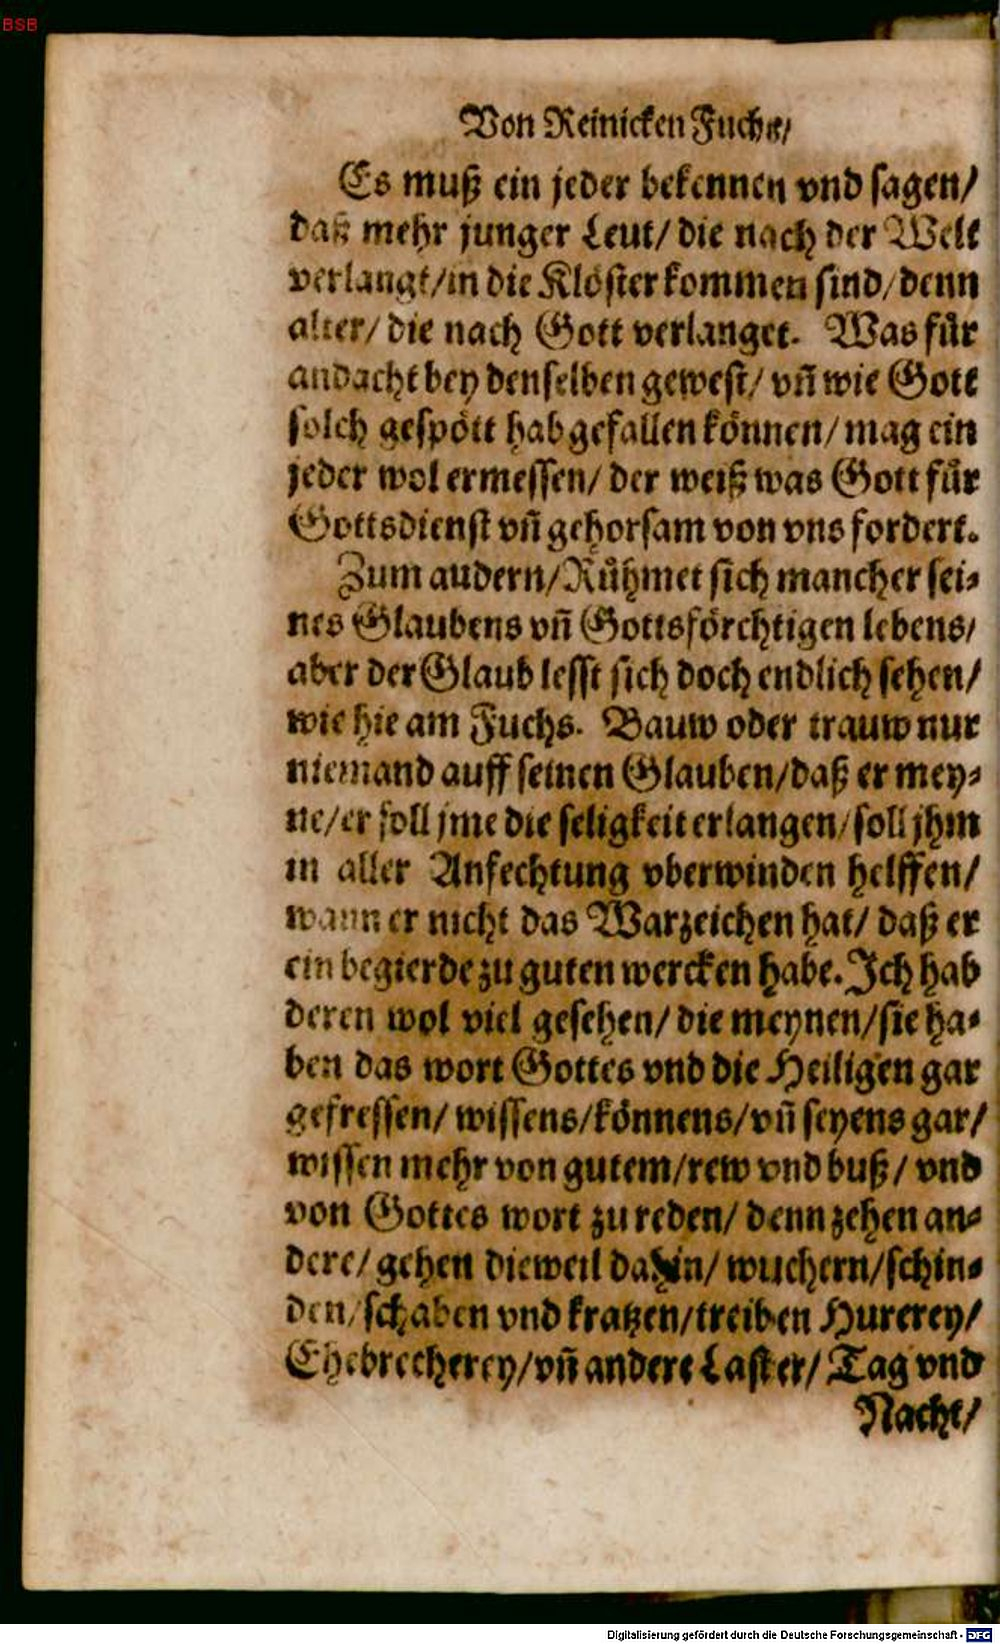 BSB
Von Reinicken Fuchs/
Es muß ein jeder bekennen vnd sagen/
daß mehr junger Leut/ die nach der Welt
verlangt/in die Klöster kommen sind/denn
alter/ die nach Gott verlanget. Was für
andacht bey denselben gewest/ vñ wie Gott
solch gespött hab gefallen können/ mag ein
jeder wol ermessen/ der weiß was Gott für
Gottsdienst vñ gehorsam von vns fordert.
Zum andern/Rühmet sich mancher sei⸗
nes Glaubens vñ Gottsförchtigen lebens/
aber der Glaub lesst sich doch endlich sehen/
wie hie am Fuchs. Bauw oder trauw nur
niemand auff seinen Glauben/daß er mey⸗
ne/er soll jme die seligkeit erlangen/soll jhm
in aller Anfechtung vberwinden helffen/
wann er nicht das Warzeichen hat/ daß er
ein begierde zu guten wercken habe. Ich hab
deren wol viel gesehen/ die meynen/sie ha⸗
ben das wort Gottes vnd die Heiligen gar
gefressen/ wissens/könnens/vñ seyens gar/
wissen mehr von gutem/rew vnd buß/ vnd
von Gottes wort zu reden/ denn zehen an⸗
dere/ gehen dieweil dahin/ wuchern/schin⸗
den/schaben vnd kratzen/treiben Hurerey/
Ehebrecherey/vñ andere Laster/ Tag vnd
Nacht/
Digitalisierung gefördert durch die Deutsche Forschungsgemeinschaft - DFG